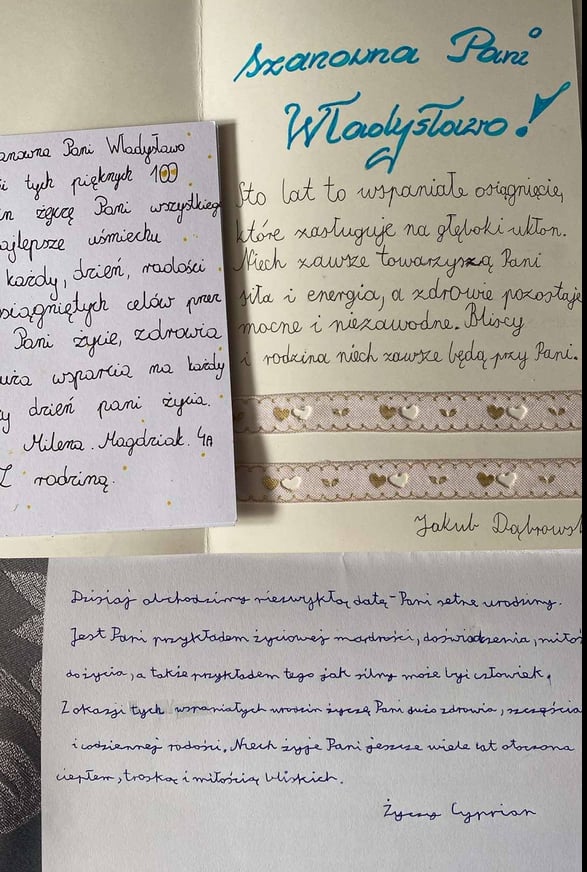 anowna Pani Władysławo
i tych pięknych 100
in życzę Pani wszystkiego
ajlepsze uśmiechu
każdy, dzień, radości
siągniętych celów przez
Pani życie, zdrowia
uża wsparcia na każdy
y dzień pani życia.
Milena. Magdziak. 4A
Z rodziną.
Szanowna Pani
Władysławo!
Sto lat to wspaniałe osiągnięcie,
które zasługuje na głęboki ukłon.
Niech zawsze towarzyszą Pani
siła i energia, a zdrowie pozostaje
mocne i niezawodne. Bliscy
i rodzina niech zawsze będą przy Pani.
Jakub Dąbrowsk
Dzisiaj obchodzimy niezwykłą datę - Pani setne urodziny.
Jest Pani przykładem życiowej mądrości, doświadczenia, miłoś
do życia, a także przykładem tego jak silny może być człowiek.
Z okazji tych wspaniałych urodzin życzę Pani dużo zdrowia, szczęścia
i codziennej radości. Niech żyje Pani jeszcze wiele lat otoczona
ciepłem, troską i miłością bliskich.
Życzy Cyprian